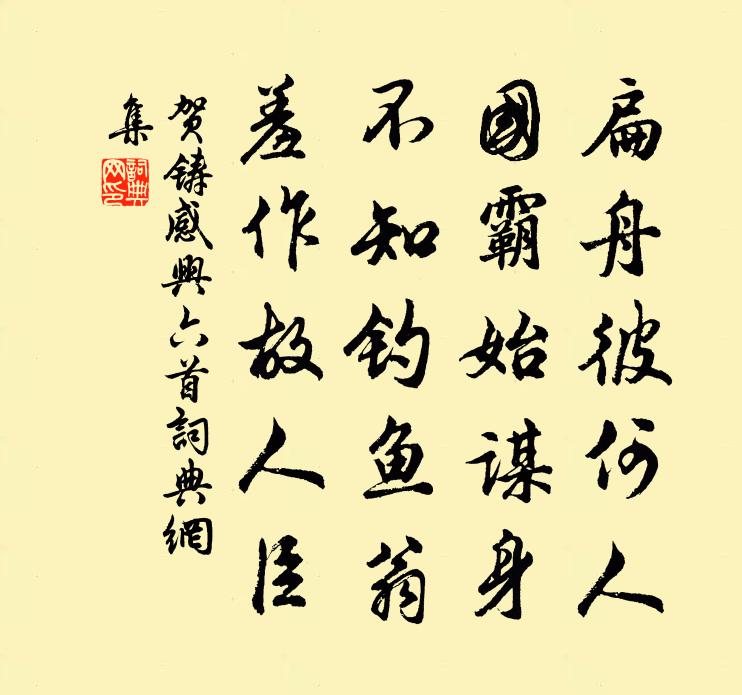 扁舟彼何人
國霸始谋身
不知钓鱼翁
羞作故人臣
贺鑄感興六首詞典網
集
詞典
网印